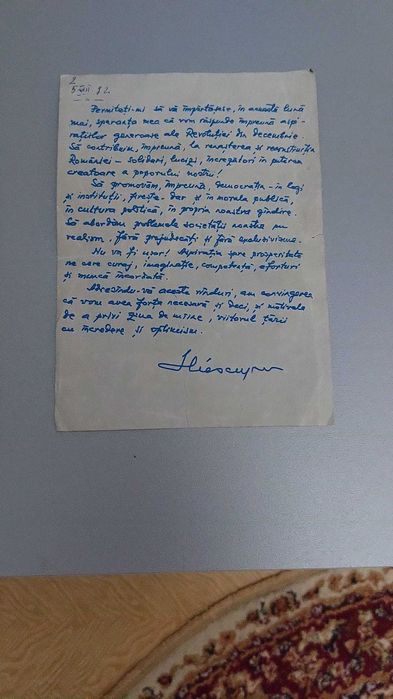 2
5 VII 92.
Permiteți-mi să vă împărtășesc, în această lună
mai, speranța mea că vom răspunde împreună aspi-
rațiilor generoase ale Revoluției din decembrie.
Să contribuim, împreună, la renașterea și reconstrucția
României - solidari, lucizi, încrezători în puterea
creatoare a poporului nostru!
Să promovăm, împreună, democrația - în legi
și instituții, firește - dar și în morala publică,
în cultura politică, în propria noastră gîndire.
Să abordăm problemele societății noastre cu
realism, fără prejudecăți și fără exclusivisme.
Nu va fi ușor! Aspirația spre prosperitate
ne cere curaj, imaginație, competență, eforturi
și muncă încordată.
Adresîndu-vă aceste rînduri, am convingerea
că vom avea forța necesară și deci, și motivele
de a privi ziua de mîine, viitorul țării
cu încredere și optimism.
Iliescu